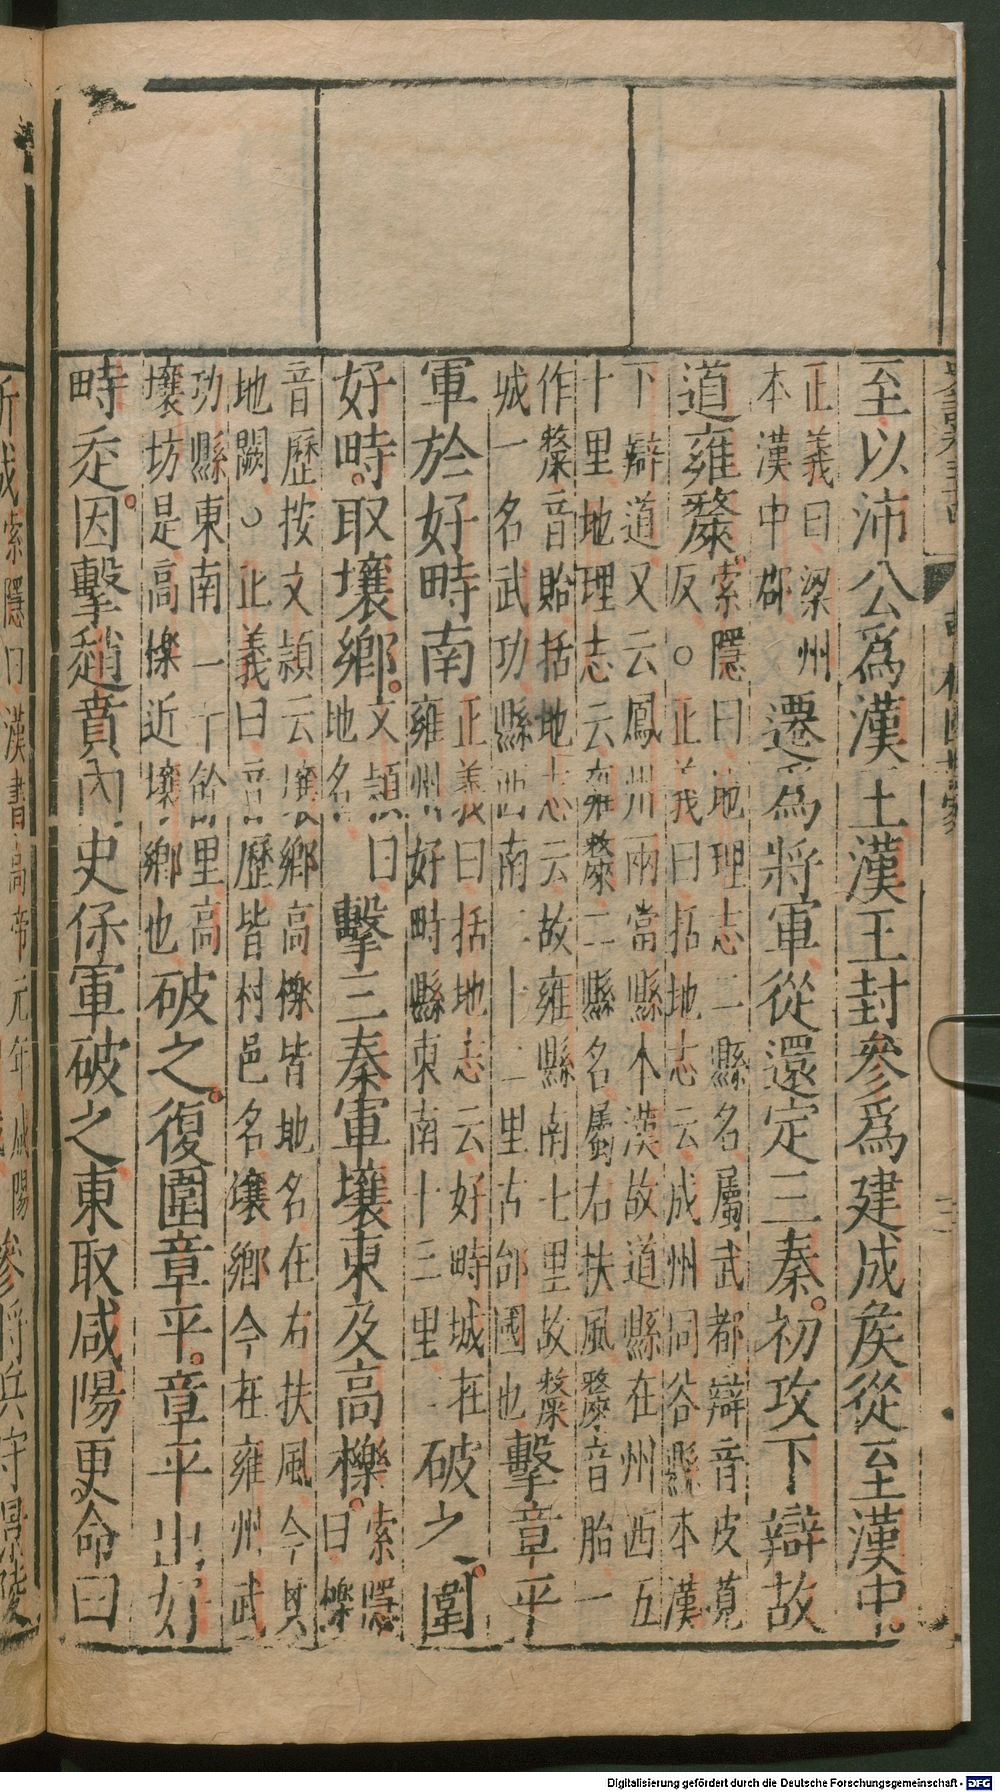 至以沛公爲漢王漢王封參爲建成矦從至漢中。
正義曰梁州
本漢中郡
遷爲將軍從還定三秦。初攻下辯故
道雍斄。
索隱曰地理志二縣名屬武都辯音皮莧
反○正義曰括地志云成州同谷縣本漢
下辯道又云鳳州兩當縣本漢故道縣在州西五
十里地理志云雍斄二縣名屬右扶風斄音胎一
作斄音貽括地志云故雍縣南七里故斄
城一名武功縣西南二十二里古邰國也
擊章平
軍於好畤南
正義曰括地志云好畤城在
雍州好畤縣東南十三里
破之。圍
好畤。取壤鄉。
文頴曰
地名
擊三秦軍壤東及高櫟。
索隱
曰櫟
音歷按文頴云壤鄉高櫟皆地名在右扶風今其
地闕○正義曰音歷皆村邑名壤鄉今在雍州武
功縣東南一十餘里高
壤坊是高櫟近壤鄉也
破之。復圍章平。章平出好
畤走。因擊趙賁內史保軍破之東取咸陽更命曰
新城索隱曰漢書高帝元年咸陽
參將兵守景陵
Digitalisierung gefördert durch die Deutsche Forschungsgemeinschaft - DFG